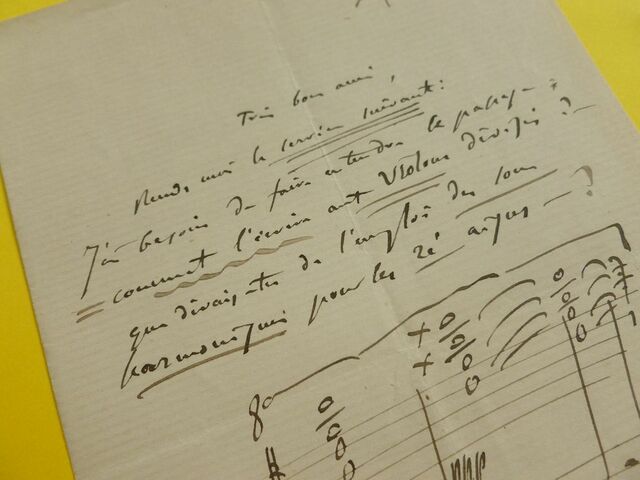 Très bon ami,
Rends moi le service suivant:
J'ai besoin de faire entendre le passage :
comment l'écrire aux Violons divisés ? —
que dirais-tu de l'emploi des sons
harmoniques pour les ré aigus — ?
8a
ppp